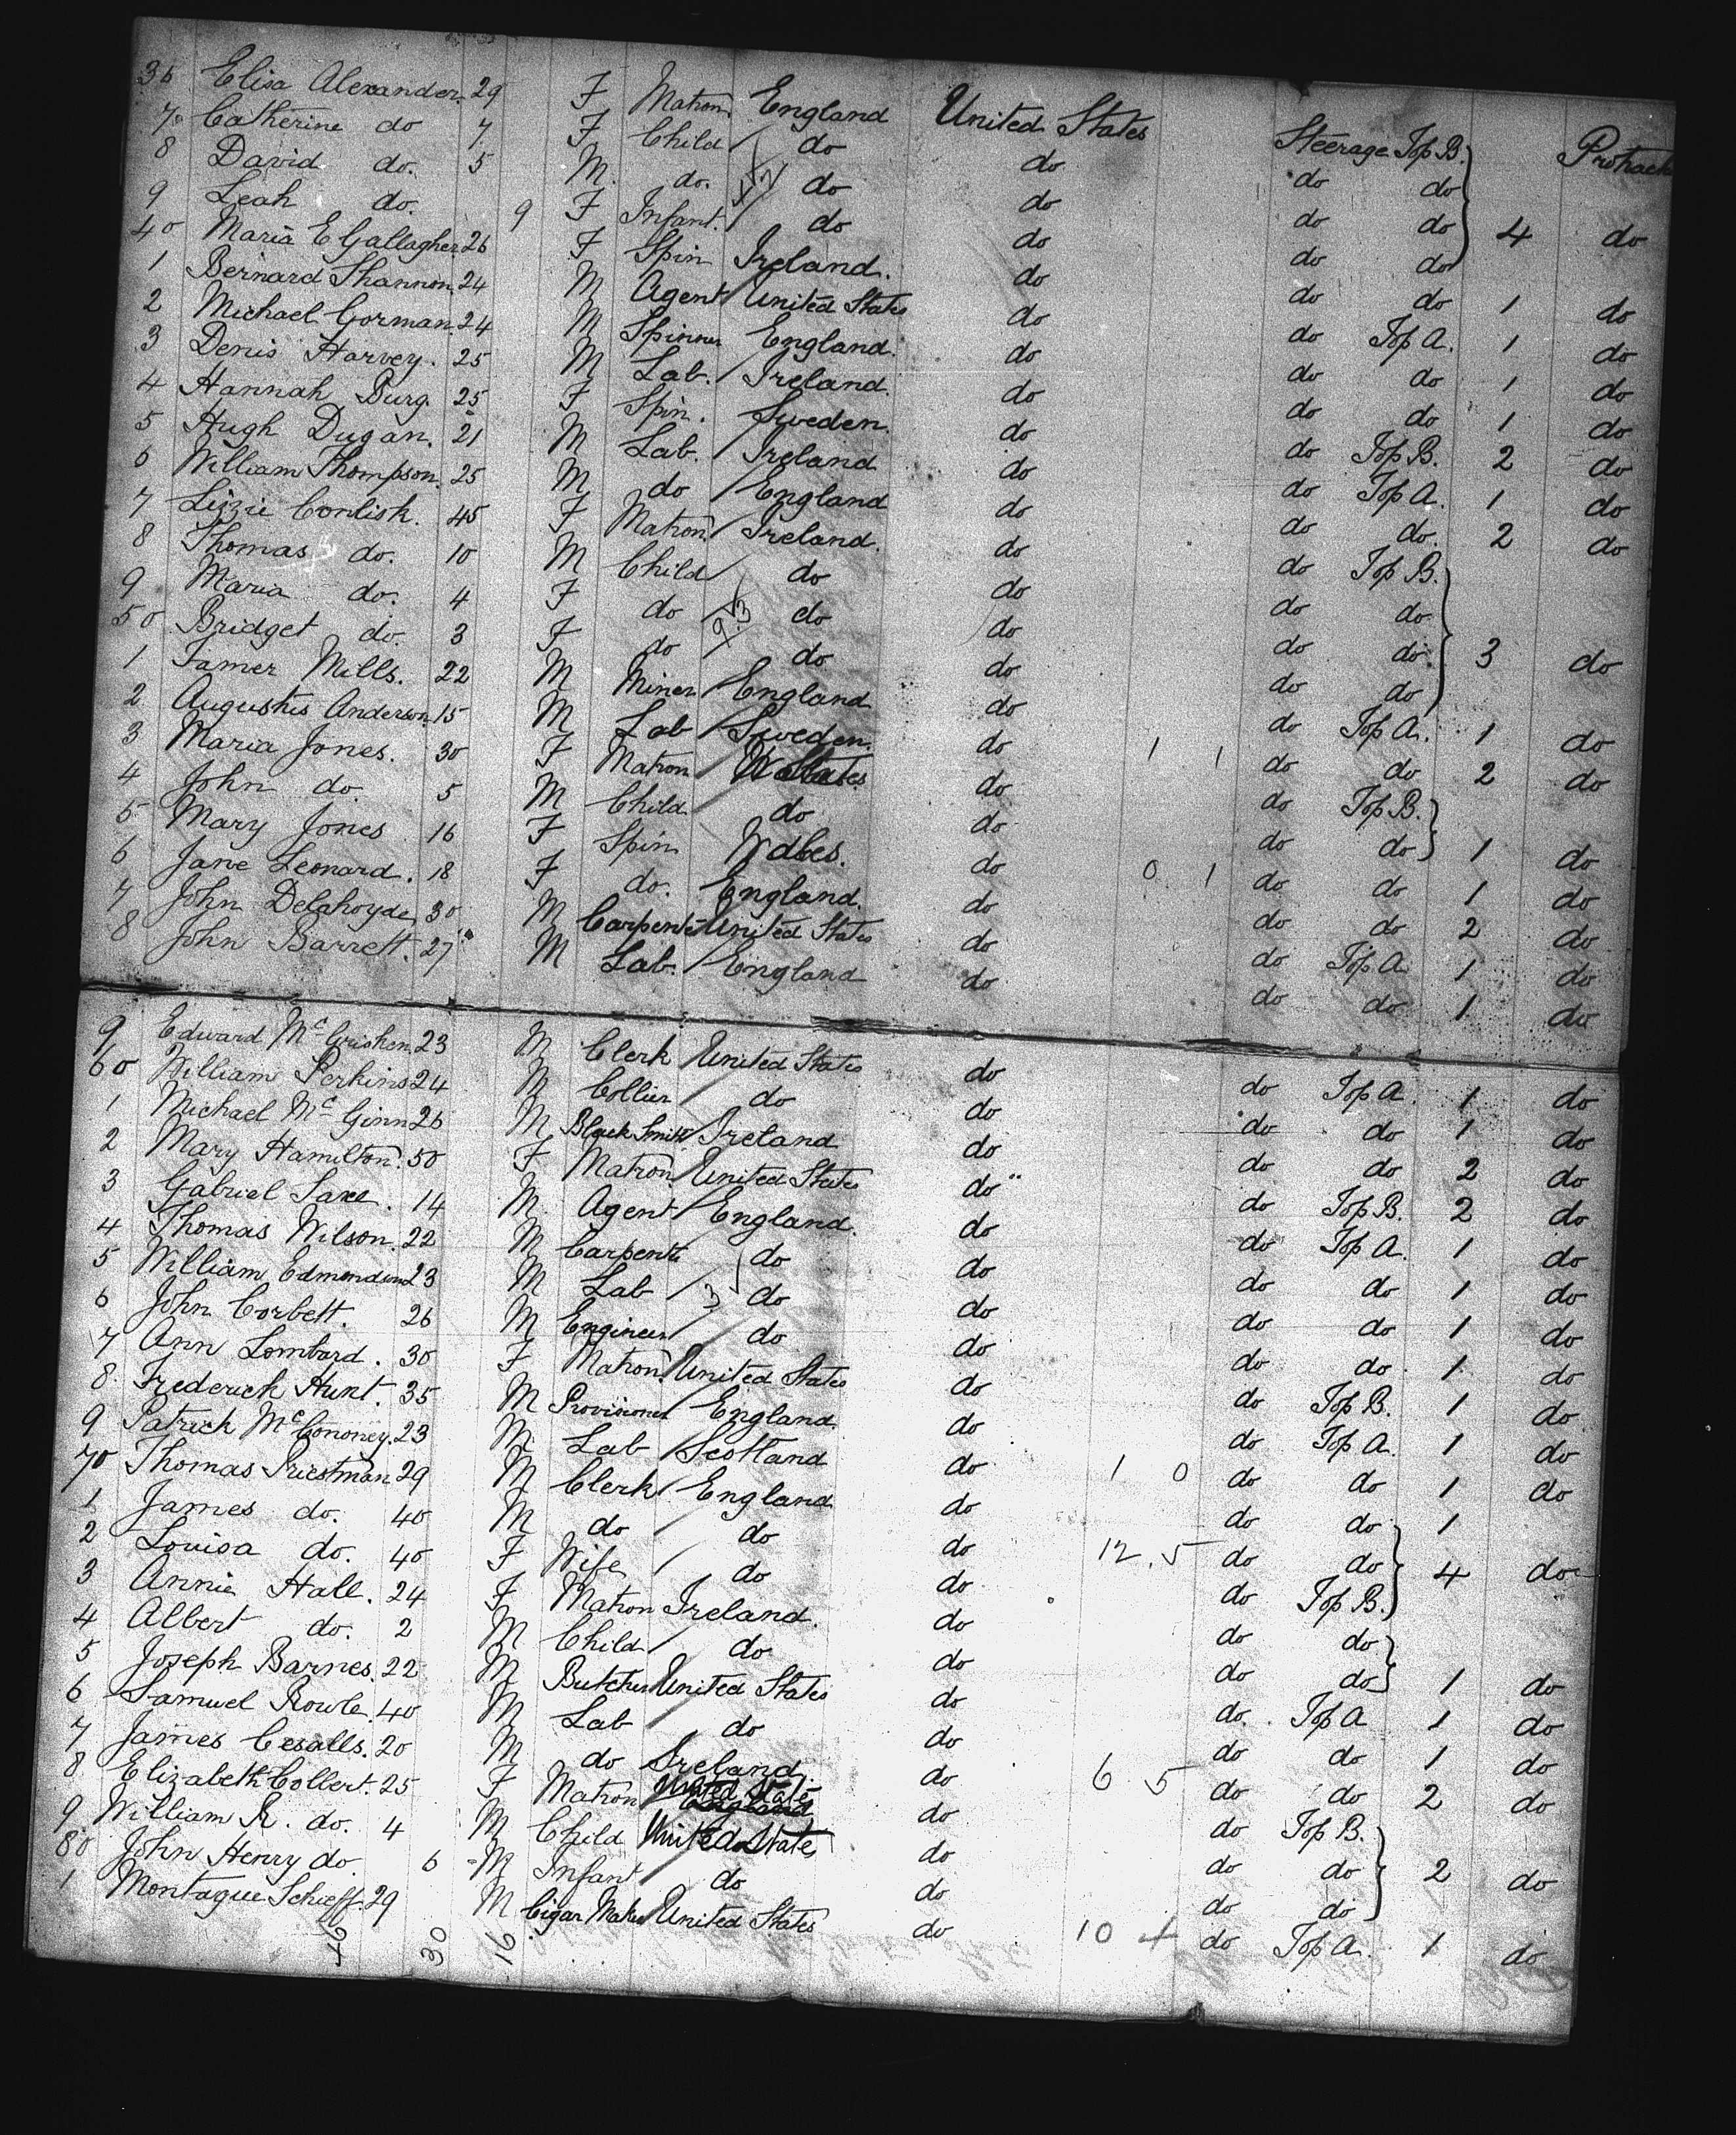 36 Elisa Alexander. 29 F Matron England United States Steerage Top B.
7 Catherine do 7 F Child do do do do
8 David do. 5 M. do. do do do do
9 Leah do. 9 F Infant. do do do do 4 do
40 Maria E Gallagher 26 F Spin Ireland. do do do 1 do
1 Bernard Shannon. 24 M Agent United States do do Top A. 1 do
2 Michael Gorman. 24 M Spinner England. do do do 1 do
3 Denis Harvey. 25 M Lab. Ireland. do do do 1 do
4 Hannah Burg. 25 F Spin. Sweden. do do Top B. 2 do
5 Hugh Dugan. 21 M Lab. Ireland do do Top A. 1 do
6 William Thompson. 25 M do England do do do. 2 do
7 Lizzie Conlish. 45 F Matron. Ireland. do do Top B.
8 Thomas do. 10 M Child do do do do.
9 Maria do. 4 F do do do do do.
50 Bridget do. 3 F do do do do do 3 do
1 James Mills. 22 M Miner England do do Top A. 1 do
2 Augustus Anderson. 15 M Lab Sweden. do 1 1 do do 2 do
3 Maria Jones. 30 F Matron do do Top B.
4 John do. 5 M Child. do do do do 1 do
5 Mary Jones 16 F Spin Wales. do 0 1 do do 1 do
6 Jane Leonard. 18 F do. England. do do do 2 do
7 John Delahoyde 30 M Carpenter United States do do Top A 1 do
8 John Barrett. 27 M Lab. England do do do 1 do
9 Edward 23 M Clerk United States do do Top A 1 do
60 William Perkins 24 M Collier do do do do 1 do
1 Michael Mc Ginn 26 M Black Smith Ireland do do do 2 do
2 Mary Hamilton. 50 F Matron United States do do Top B. 2 do
3 Gabriel Saxe. 14 M. Agent England. do do Top A. 1 do
4 Thomas Wilson. 22 M Carpentr do do do do 1 do
5 William 23 M Lab do do do do 1 do
6 John Corbett. 26 M Engineer do do do do 1. do
7 Ann Lombard. 30 F Matron. United States do do Top B. 1 do
8. Frederick Hunt. 35 M England. do do Top A. 1 do
9 Patrick 23 M. Lab Scotland do 1 0 do do 1 do
70 Thomas Priestman 29 M Clerk England do do do. 1
1 James do. 40 M do do do 12.5 do do 4 do
2 Louisa do. 40 F Wife do do do Top B.
3 Annie Hall. 24 F Matron Ireland. do do do
4 Albert do. 2 M Child do do do do 1 do
5 Joseph Barnes. 22 M Butcher United States do do. Top A 1 do
6 Samuel Rowle. 40 M Lab do do do do 1 do
7 James 20 M do Ireland do 6 5 do do 2 do
8 Elizabeth Collert. 25 F Matron United State do do Top B.
9 William R. do. 4 M Child United State do do do 2 do
80 John Henry do. 6 M Infant do do do do
1 Montague 29 M Cigar Maker United States do 10 4 do Top A. 1 do
30 16